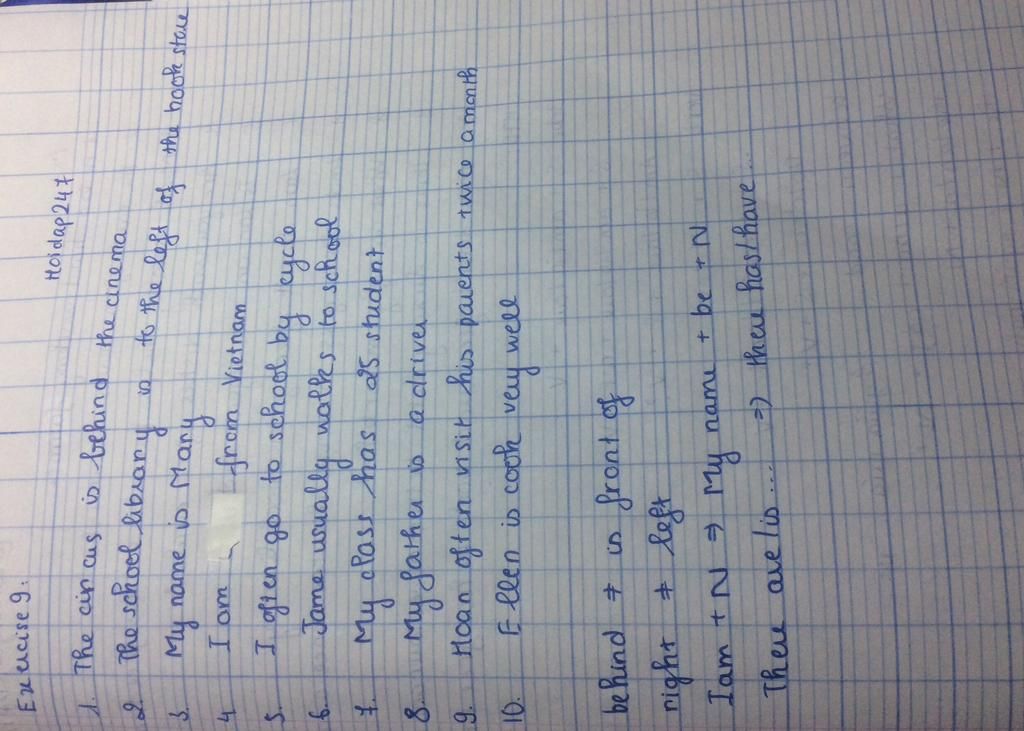 Exercise 9:
Hoidap247
1. The circus is behind the cinema
2. The school library is to the left of the book store
3. My name is Mary
4 I am from Vietnam
5. I often go to school by cycle
6. Jame usually walks to school
7. My class has 25 student
8. My father is a driver
9. Hoan often visit his parents twice a month
10. Ellen is cook very well
behind ≠ in front of
right ≠ left
I am + N => My name + be + N
There are/is.... => there has/have...